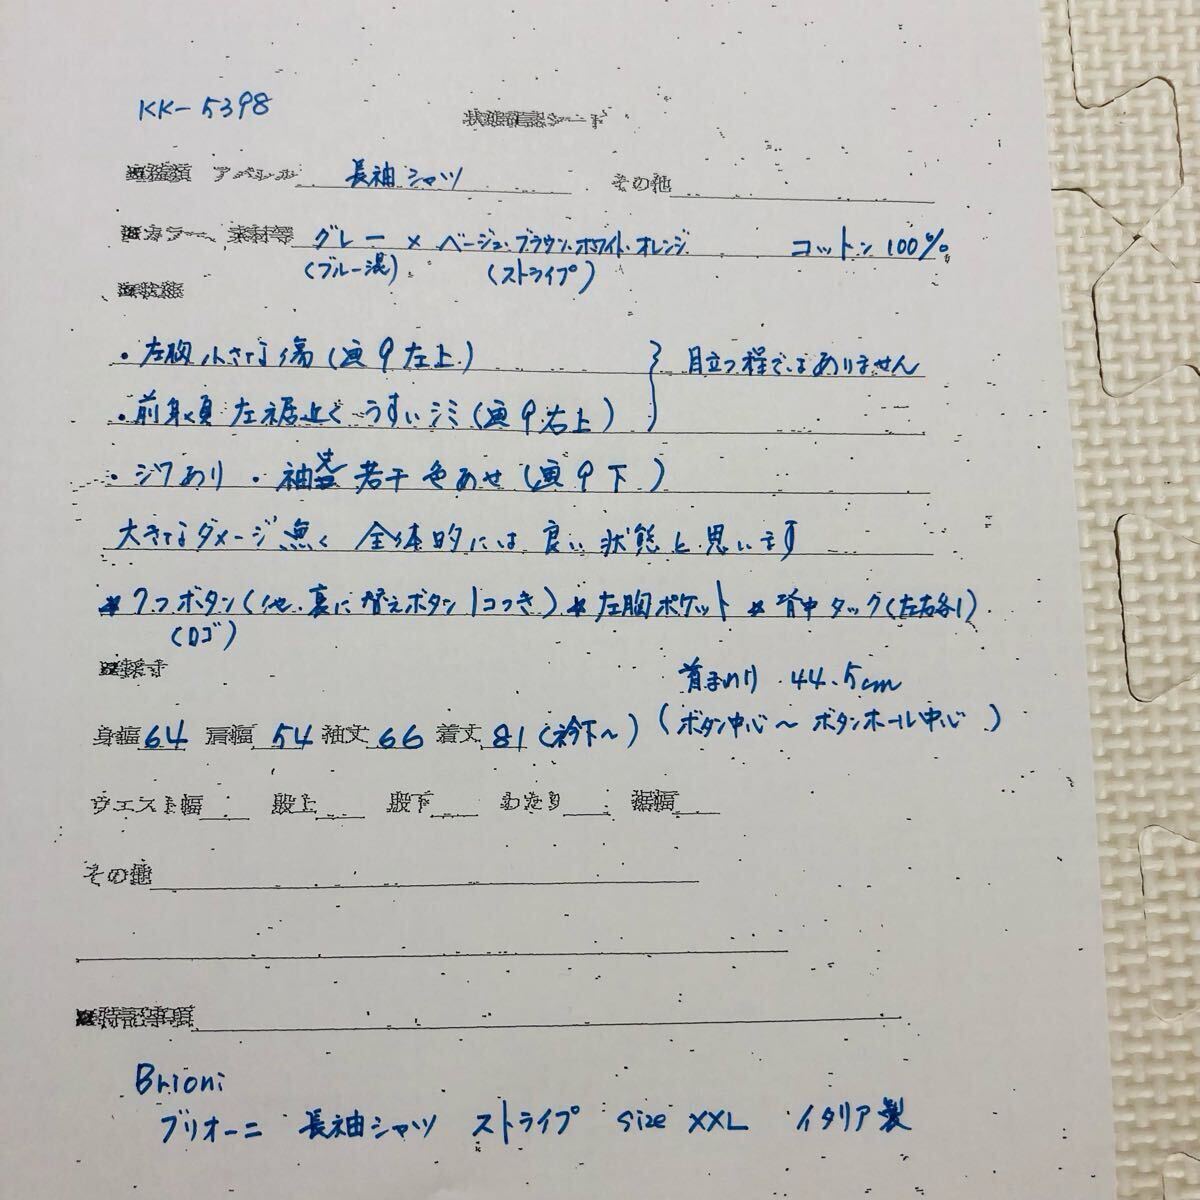 KK-5398
状態確認シート
■種類 アパレル 長袖シャツ その他
■カラー、素材等 グレー × ベージュ・ブラウン・ホワイト・オレンジ コットン100%
(ブルー混) (ストライプ)
■状態
・左胸 小さな傷(画9左上) 目立つ程ではありません
・前身頃 左裾近く うすいシミ(画9右上)
・シワあり ・袖先 若干色あせ(画9下)
大きなダメージ無く 全体的には良い状態と思います
*7つボタン(他、裏に替えボタン1コつき) *左胸ポケット *背中タック(左右各1)
(ロゴ)
■採寸
首まわり 44.5cm
身幅64 肩幅54 袖丈66 着丈81(衿下~) (ボタン中心~ボタンホール中心)
ウエスト幅 股上 股下 わたり 裾幅
その他
■特記事項
Brioni
ブリオーニ 長袖シャツ ストライプ size XXL イタリア製